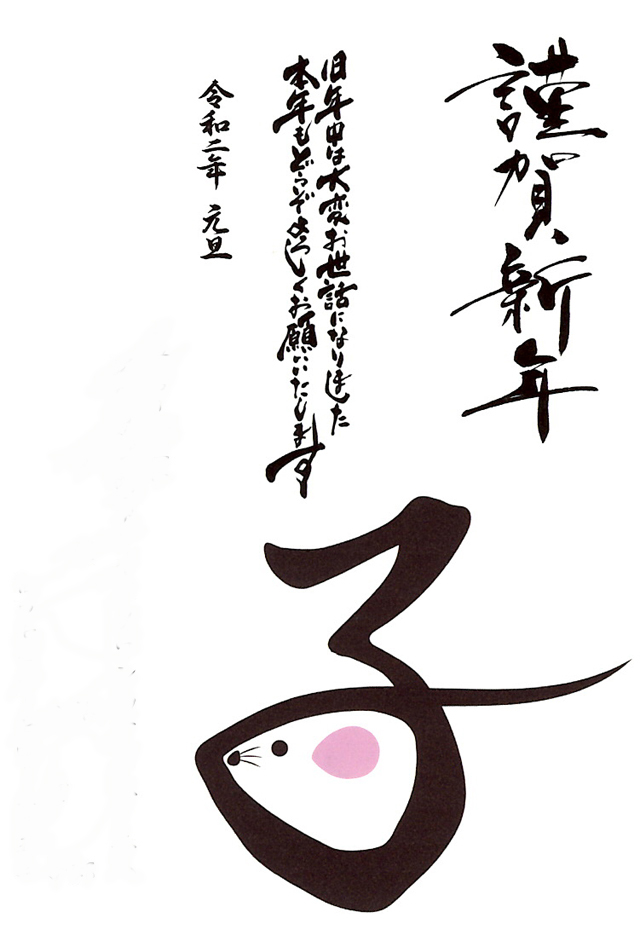 謹賀新年
旧年中は大変お世話になりました
本年もどうぞよろしくお願いいたします
令和二年 元旦
子